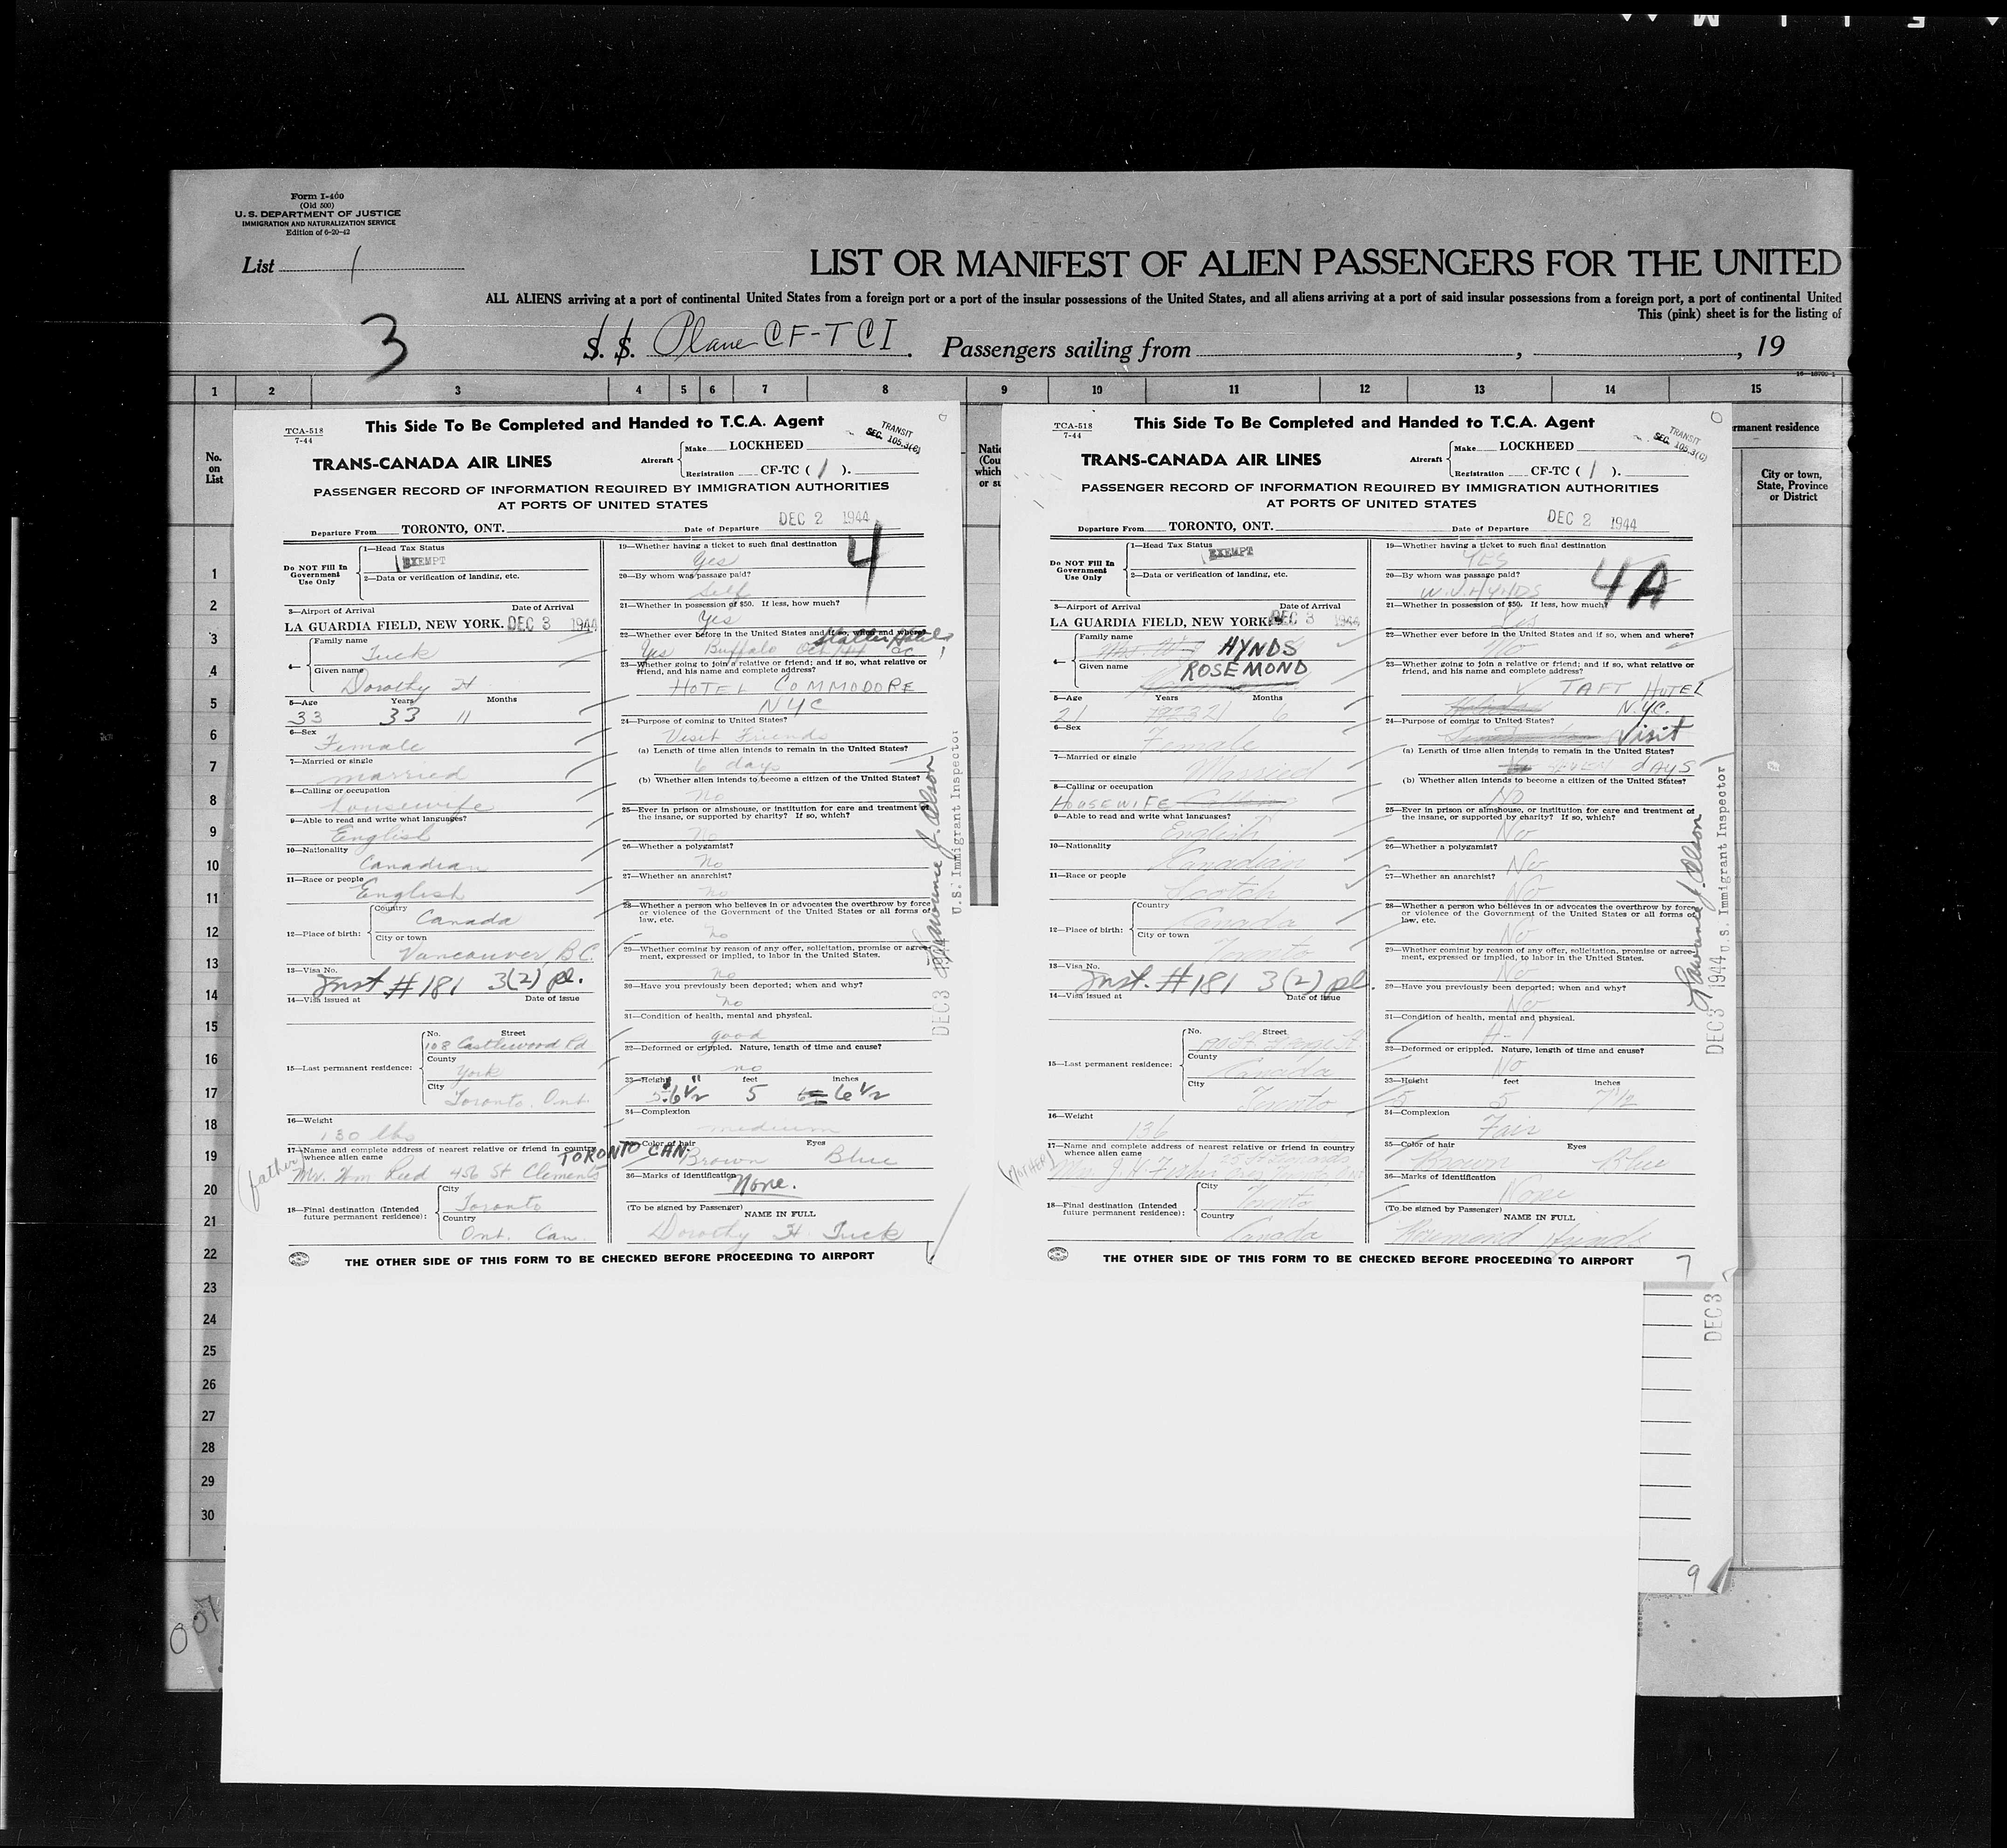 Form I-400
(Old 500)
U. S. DEPARTMENT OF JUSTICE
IMMIGRATION AND NATURALIZATION SERVICE
Edition of 6-20-42
List 1
LIST OR MANIFEST OF ALIEN PASSENGERS FOR THE UNITED
ALL ALIENS arriving at a port of continental United States from a foreign port or a port of the insular possessions of the United States, and all aliens arriving at a port of said insular possessions from a foreign port, a port of continental United
This (pink) sheet is for the listing of
3
S. S. Plane CF-TCI. Passengers sailing from , , 19
1 2 3 4 5 6 7 8 9 10 11 12 13 14 15
No.
on
List
rmanent residence
City or town,
State, Province
or District
1
2
3
4
5
6
7
8
9
10
11
12
13
14
15
16
17
18
19
20
21
22
23
24
25
26
27
28
29
30
007
TCA-518
7-44
This Side To Be Completed and Handed to T.C.A. Agent
TRANSIT
SEC. 105.3(C)
TRANS-CANADA AIR LINES
Aircraft
Make LOCKHEED
Registration CF-TC ( I ).
PASSENGER RECORD OF INFORMATION REQUIRED BY IMMIGRATION AUTHORITIES
AT PORTS OF UNITED STATES
Departure From TORONTO, ONT.
Date of Departure DEC 2 1944
4
Do NOT Fill In
Government
Use Only
1—Head Tax Status
EXEMPT
2—Data or verification of landing, etc.
3—Airport of Arrival Date of Arrival
LA GUARDIA FIELD, NEW YORK. DEC 3 1944
4—
Family name
Tuck
Given name
Dorothy H
5—Age Years Months
33 33 11
6—Sex
Female
7—Married or single
married
8—Calling or occupation
housewife
9—Able to read and write what languages?
English
10—Nationality
Canadian
11—Race or people
English
12—Place of birth:
Country
Canada
City or town
Vancouver, B.C.
13—Visa No.
Inst #181 3(2) pl.
14—Visa issued at Date of issue
15—Last permanent residence:
No. Street
108 Castlewood Rd
County
York
City
Toronto. Ont.
16—Weight
130 lbs
17—Name and complete address of nearest relative or friend in country
whence alien came
TORONTO CAN.
(father) Mr. Wm Reed 456 St Clements
18—Final destination (Intended
future permanent residence):
City
Toronto
Country
Ont. Can.
19—Whether having a ticket to such final destination
Yes
20—By whom was passage paid?
Self
21—Whether in possession of $50. If less, how much?
Yes
22—Whether ever before in the United States and if so, when and where?
Yes Buffalo Oct
23—Whether going to join a relative or friend; and if so, what relative or
friend, and his name and complete address?
HOTEL COMMODORE
NYC
24—Purpose of coming to United States?
Visit Friends
(a) Length of time alien intends to remain in the United States?
6 days
(b) Whether alien intends to become a citizen of the United States?
No
25—Ever in prison or almshouse, or institution for care and treatment of
the insane, or supported by charity? If so, which?
No
26—Whether a polygamist?
No
27—Whether an anarchist?
No
28—Whether a person who believes in or advocates the overthrow by force
or violence of the Government of the United States or all forms of
law, etc.
No
29—Whether coming by reason of any offer, solicitation, promise or agree-
ment, expressed or implied, to labor in the United States.
No
30—Have you previously been deported; when and why?
No
31—Condition of health, mental and physical.
good
32—Deformed or crippled. Nature, length of time and cause?
no
33—Height feet inches
5' 6½" 5 6½
34—Complexion
medium
35—Color of hair Eyes
Brown Blue
36—Marks of identification
None.
(To be signed by Passenger) NAME IN FULL
Dorothy H. Tuck
THE OTHER SIDE OF THIS FORM TO BE CHECKED BEFORE PROCEEDING TO AIRPORT
DEC 3 1944 Lawrence J. Olson
U.S. Immigrant Inspector
TCA-518
7-44
This Side To Be Completed and Handed to T.C.A. Agent
TRANSIT
SEC. 105.3(C)
TRANS-CANADA AIR LINES
Aircraft
Make LOCKHEED
Registration CF-TC ( I ).
PASSENGER RECORD OF INFORMATION REQUIRED BY IMMIGRATION AUTHORITIES
AT PORTS OF UNITED STATES
Departure From TORONTO, ONT.
Date of Departure DEC 2 1944
4A
Do NOT Fill In
Government
Use Only
1—Head Tax Status
EXEMPT
2—Data or verification of landing, etc.
3—Airport of Arrival Date of Arrival
LA GUARDIA FIELD, NEW YORK. DEC 3 1944
4—
Family name
HYNDS
Given name
ROSEMOND
5—Age Years Months
21 21 6
6—Sex
Female
7—Married or single
Married
8—Calling or occupation
HOUSEWIFE
9—Able to read and write what languages?
English
10—Nationality
Canadian
11—Race or people
Scotch
12—Place of birth:
Country
Canada
City or town
Toronto
13—Visa No.
Inst. #181 3(2) pl.
14—Visa issued at Date of issue
15—Last permanent residence:
No. Street
County
Canada
City
Toronto
16—Weight
136
17—Name and complete address of nearest relative or friend in country
whence alien came
(MOTHER) Mrs J. H.
18—Final destination (Intended
future permanent residence):
City
Toronto
Country
Canada
19—Whether having a ticket to such final destination
YES
20—By whom was passage paid?
W. J. HYNDS
21—Whether in possession of $50. If less, how much?
Yes
22—Whether ever before in the United States and if so, when and where?
No
23—Whether going to join a relative or friend; and if so, what relative or
friend, and his name and complete address?
TAFT HOTEL
N.Y.C.
24—Purpose of coming to United States?
Visit
(a) Length of time alien intends to remain in the United States?
days
(b) Whether alien intends to become a citizen of the United States?
No
25—Ever in prison or almshouse, or institution for care and treatment of
the insane, or supported by charity? If so, which?
No
26—Whether a polygamist?
No
27—Whether an anarchist?
No
28—Whether a person who believes in or advocates the overthrow by force
or violence of the Government of the United States or all forms of
law, etc.
No
29—Whether coming by reason of any offer, solicitation, promise or agree-
ment, expressed or implied, to labor in the United States.
No
30—Have you previously been deported; when and why?
No
31—Condition of health, mental and physical.
A-1
32—Deformed or crippled. Nature, length of time and cause?
No
33—Height feet inches
5 5 7½
34—Complexion
Fair
35—Color of hair Eyes
Brown Blue
36—Marks of identification
None
(To be signed by Passenger) NAME IN FULL
Rosemond Hynds
THE OTHER SIDE OF THIS FORM TO BE CHECKED BEFORE PROCEEDING TO AIRPORT
7
DEC 3 1944 Lawrence J. Olson
U.S. Immigrant Inspector
DEC 3
9